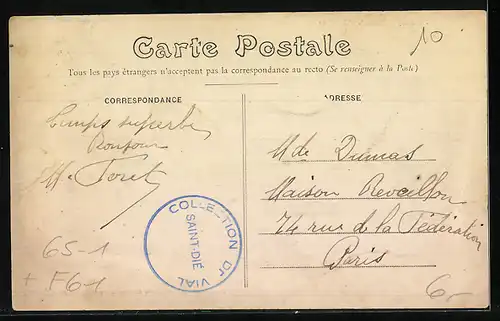 10
Carte Postale
Tous les pays étrangers n'acceptent pas la correspondance au recto (Se renseigner à la Poste)
CORRESPONDANCE
ADRESSE
Temps superbe
Bonjour
M. Foret
Mde Dumas
Maison Reveillon
74 rue de la Fédération
Paris
COLLECTION Dr VIAL
SAINT-DIÉ
65-1
+ F61
6-